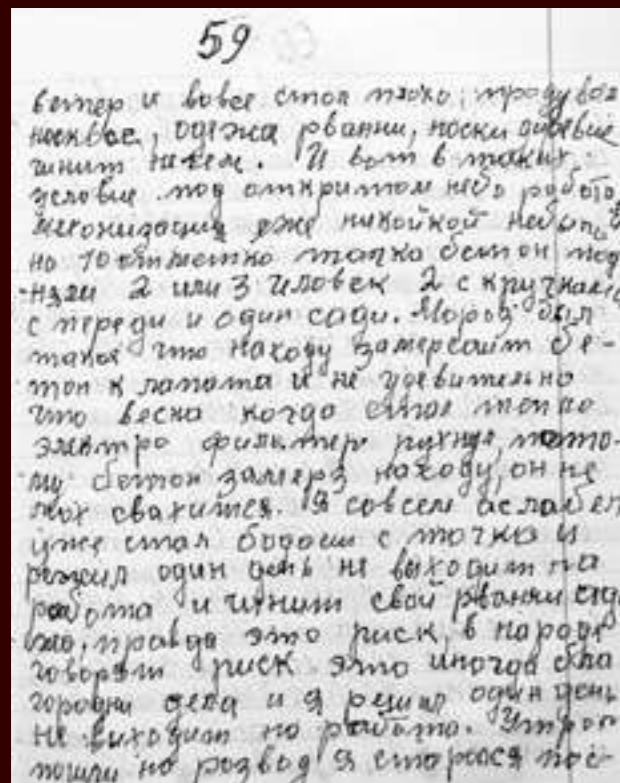 59
ветер и вовсе стоя плохо, продувоя
носквое, одежа рванни, носки дыревие
чинит нечем. И вот в таких
условие под откритом небо работо,
мегонизация уже никойкой небыло
но 10 тачко бетон под
няли 2 или 3 человек 2 с кручками
с переди и один сади. Мороз был
такое что находу замерсаит бе-
тон к лапата и не удевительно
что весна когда стое тепло
электро фильтер рухнуе, пото-
му бетон замерз находу, он не
мох свахится. Я совсем аслабел
уже стал бодоеш с точки и
режил один день не выходит на
работа и чинит свой рванни оде
жо, правда это риск, в народе
говорят риск это иногда бла
городни дела и я решил один день
не виходит но работо. Утром
пошли но розвод я старося пос-